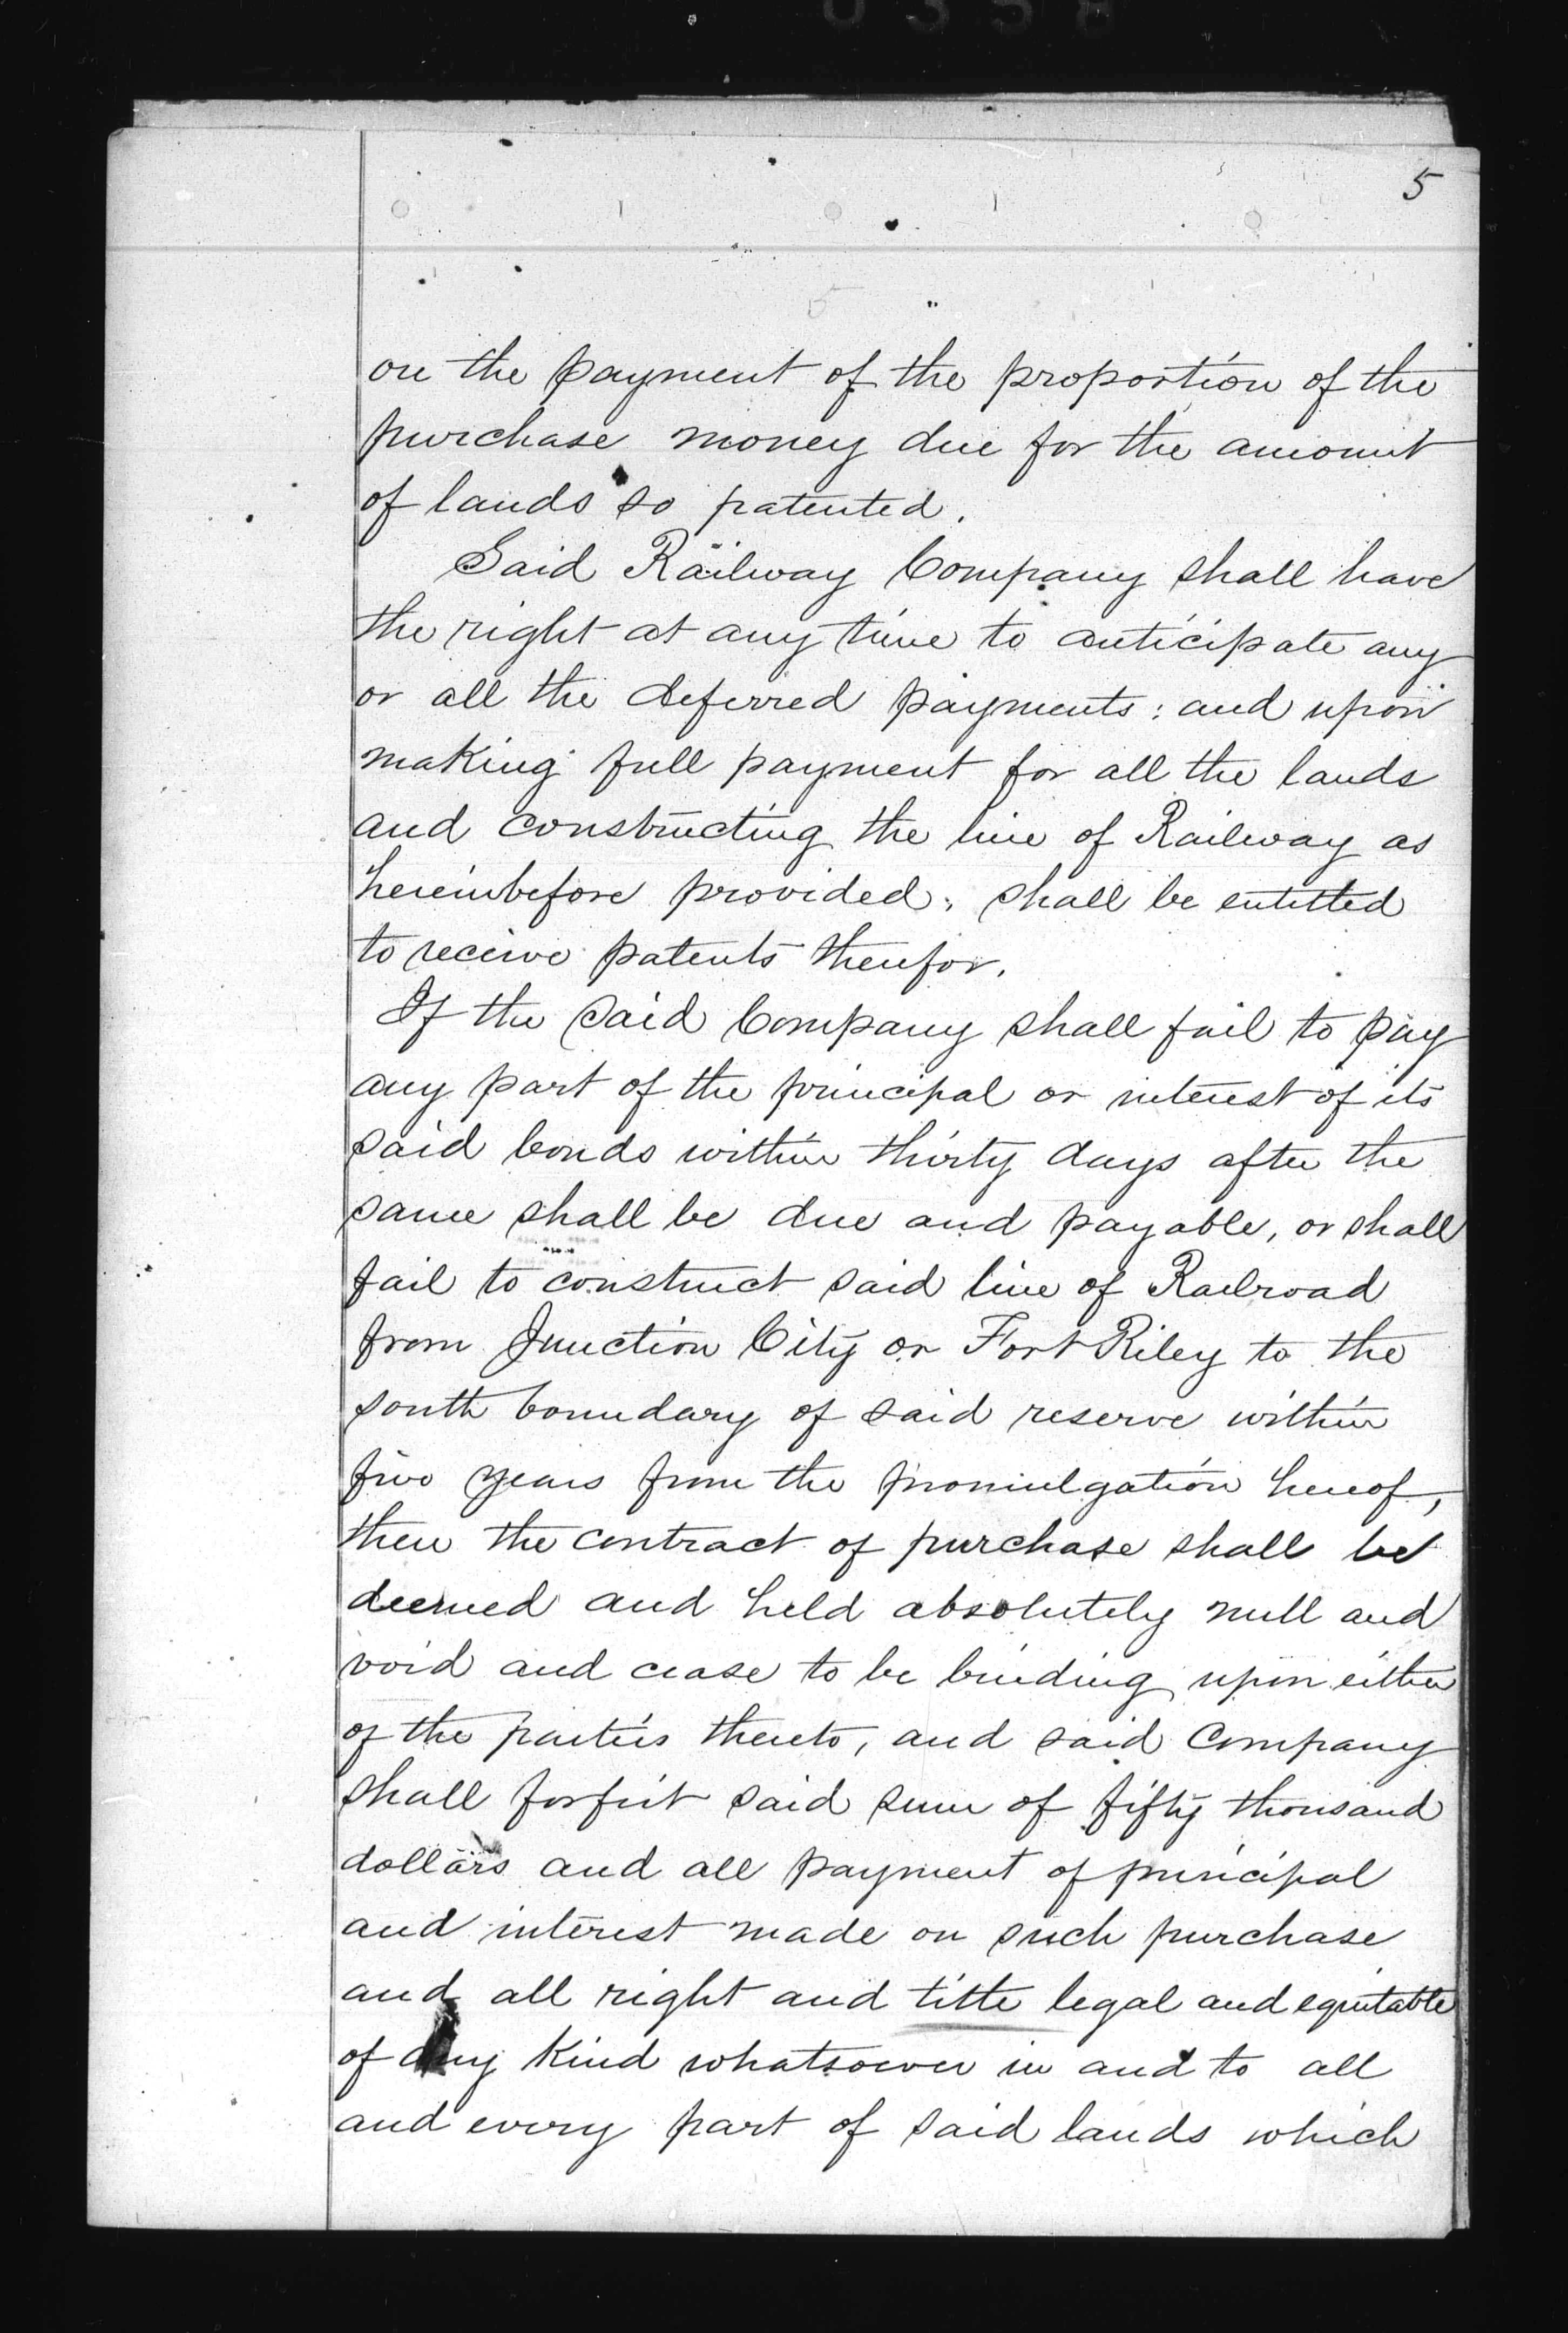 5
on the payment of the proportion of the
purchase money due for the amount
of lands so patented.
Said Railway Company shall have
the right at any time to anticipate any
or all the deferred payments: and upon
making full payment for all the lands
and constructing the line of Railway as
hereinbefore provided, shall be entitled
to receive patents therefor.
If the said Company shall fail to pay
any part of the principal or interest of its
said bonds within thirty days after the
same shall be due and payable, or shall
fail to construct said line of Railroad
from Junction City or Fort Riley to the
south boundary of said reserve within
five years from the promulgation hereof,
then the contract of purchase shall be
deemed and held absolutely null and
void and cease to be binding upon either
of the parties thereto, and said Company
shall forfeit said sum of fifty thousand
dollars and all payment of principal
and interest made on such purchase
and all right and title legal and equitable
of any kind whatsoever in and to all
and every part of said lands which